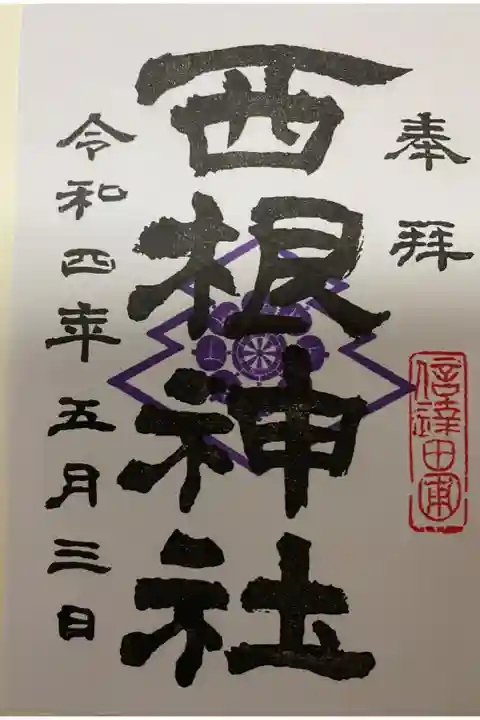 奉拜
信達田甫
西根神社
令和四年五月三日